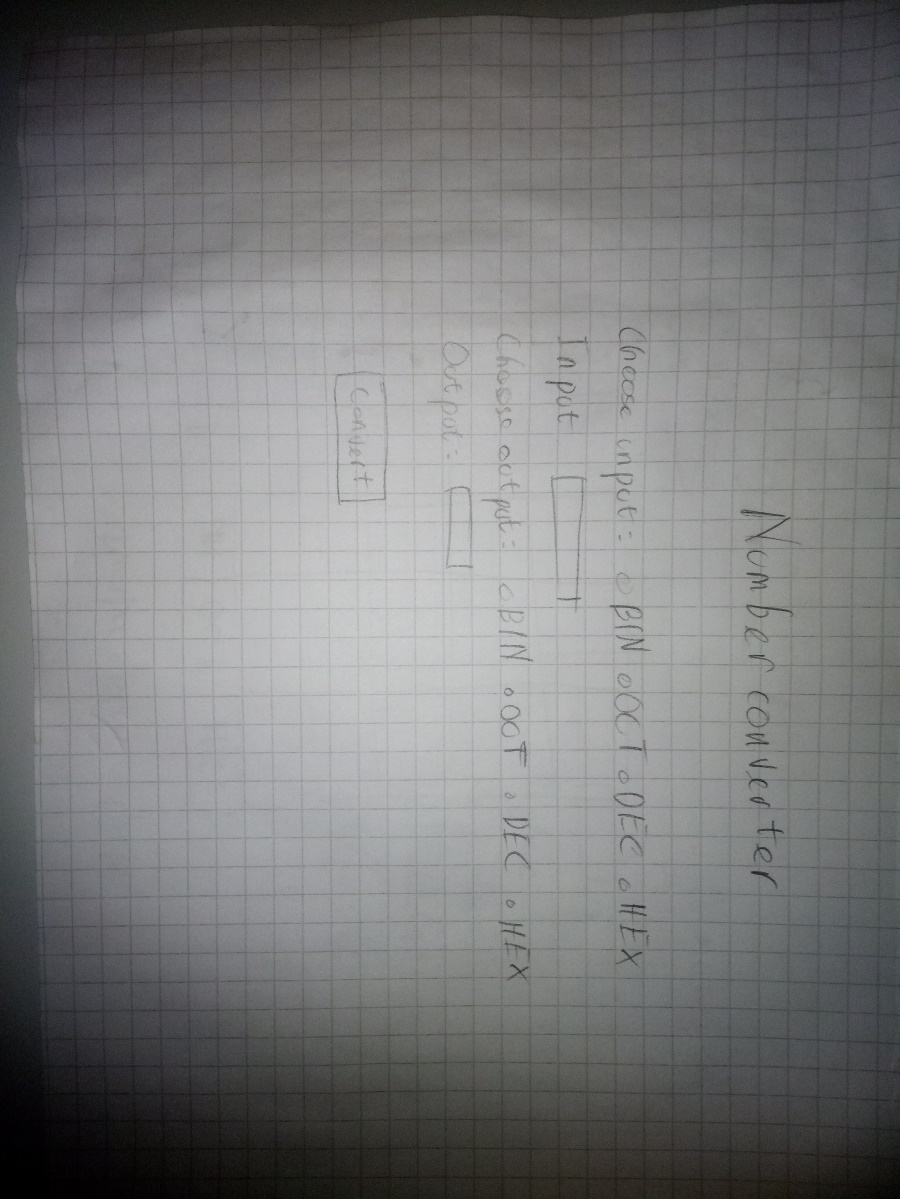 Number converter
Choose input: o BIN o OCT o DEC o HEX
Input
Choose output: o BIN o OCT o DEC o HEX
Output:
Convert